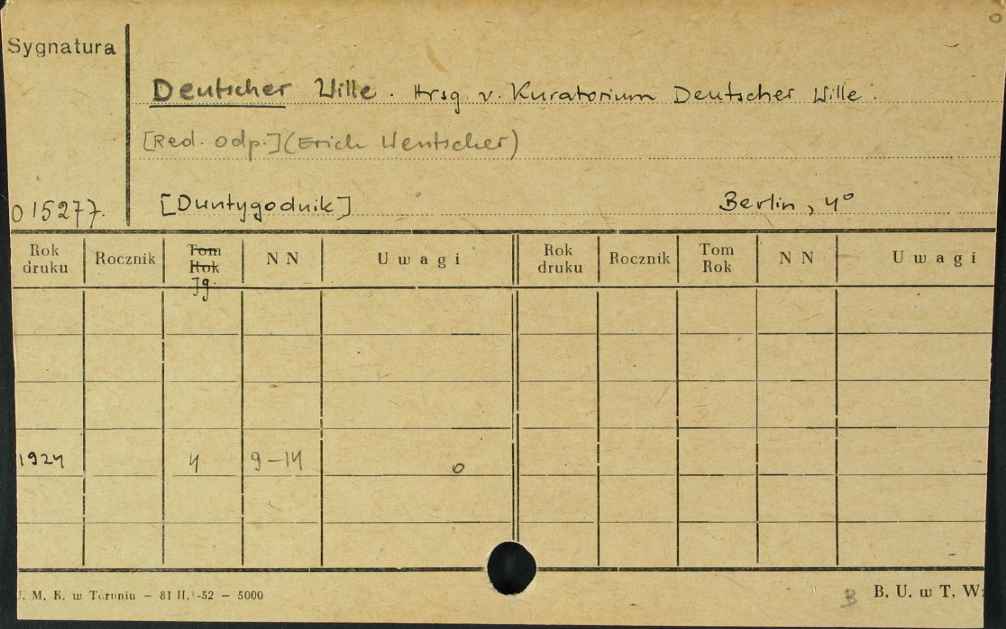 Sygnatura
Deutscher Wille. Hrsg. v. Kuratorium Deutscher Wille.
[Red. odp.] (Erich Wentscher)
015277. [Dwutygodnik] Berlin, 4°
Rok druku Rocznik Tom Rok Jg. NN Uwagi Rok druku Rocznik Tom Rok NN Uwagi
1924 4 9-14 o
M. K. w Toruniu – 81 II. -52 – 5000 B B. U. w T. W